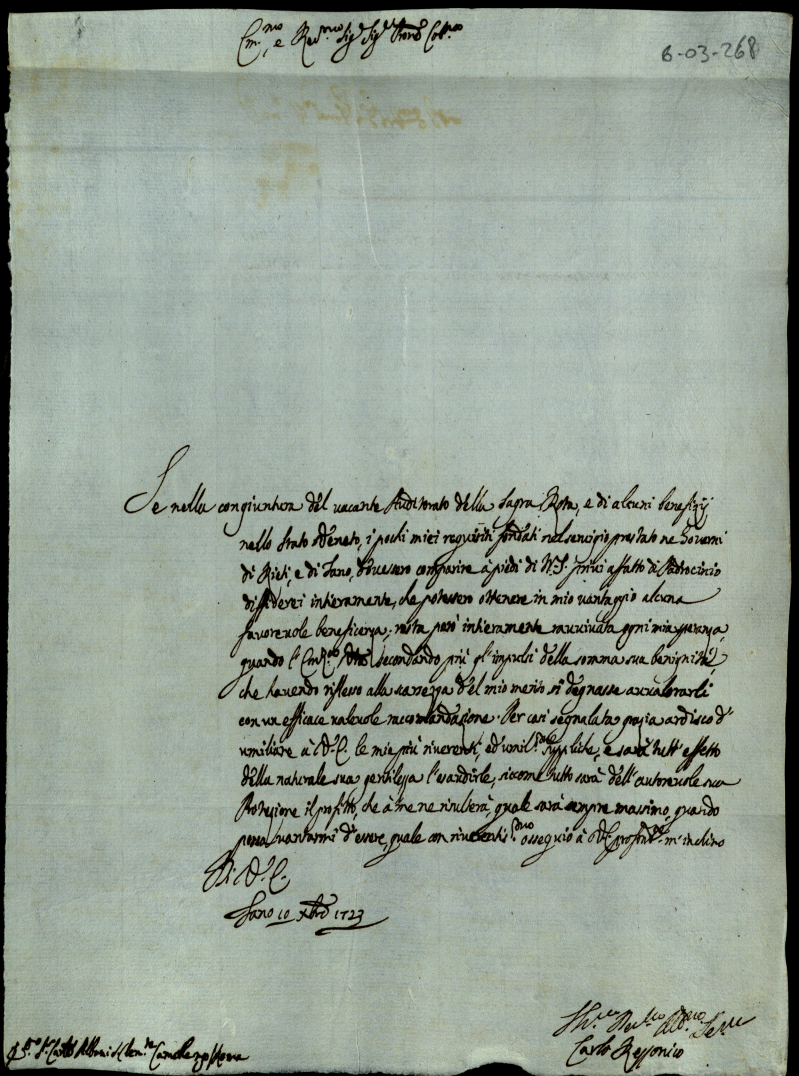 Em.mo e Rev.mo Sig.r Sig.r Pron. Col.mo
6-03-268
Se nella congiuntura del vacante Auditorato della Sagra Rota, e di alcuni benefizij
nello Stato Veneto, i pochi miei requisiti fondati nel servigio prestato ne Governi
di Rieti, e di Fano, dovessero comparire à piedi di N.S. privi affatto di Padrocinio
diffiderei intieramente, che potessero ottenere in mio vantaggio alcuna
favorevole beneficenza; resta però intieramente ravvivata ogni mia speranza,
quando l'Em. V.ra secondando più gl'impulsi della somma sua benignità,
che havendo riflesso alla scarsezza del mio merito si degnasse avvalorarli
con un efficace valevole raccomandazione. Per così segnalata grazia ardisco d'
umiliare à V.E. le mie più riverenti, ed umil.me suppliche, e sarà tutt'effetto
della naturale sua gentilezza l'esaudirle, siccome tutto sarà dell'autorevole sua
Protezione il profitto, che à me ne risulterà, quale sarà sempre massimo, quando
possa vantarmi d'essere, quale con riverentis.mo ossequio à V.E. profond.te m'inchino
Di V.E.
Fano 10 Xbre 1723
Hu.mo Dev.mo Obl.mo Se.re
Carlo Rezzonico
S.r Card. Albani S. Clem.te Camerlengo Roma